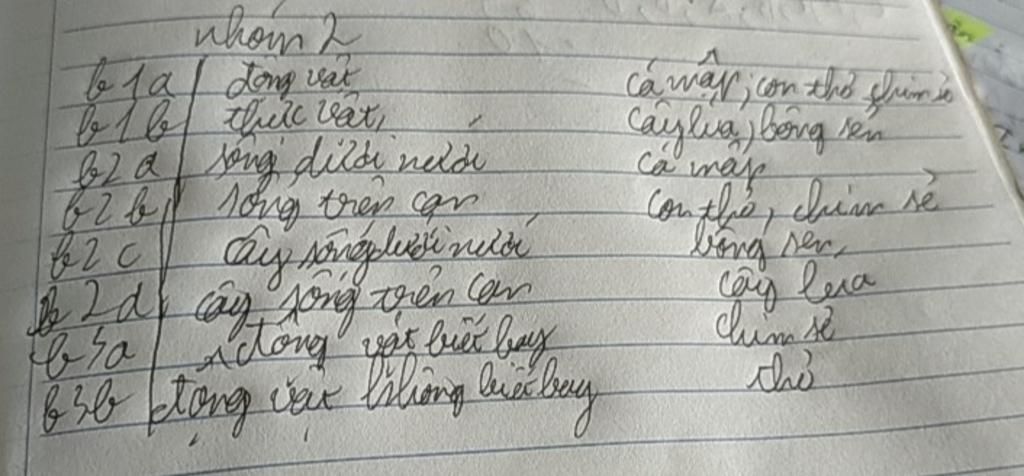 nhóm 2
b1a động vật cá mập, con thỏ chim sẻ
b1b thức vật, cây lúa, bông sen
b2a sống dưới nước cá mập
b2b sống trên cạn con thỏ, chim sẻ
b2c cây sống dưới nước bông sen,
b2d cây sống trên cạn cây lúa
b3a động vật biết bay chim sẻ
b3b động vật không biết bay thỏ